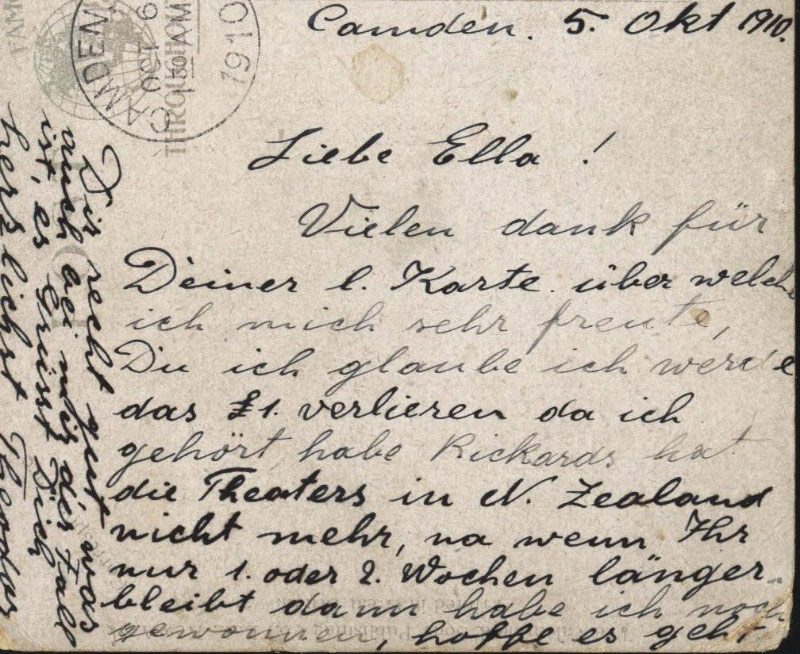 Camden. 5. Okt 1910.
Liebe Ella !
Vielen dank für
Deiner l. Karte über welche
ich mich sehr freute,
Du ich glaube ich werde
das £1. verlieren da ich
gehört habe Rickards hat
die Theaters in N. Zealand
nicht mehr, na wenn Ihr
nur 1. oder 2. Wochen länger
bleibt dann habe ich noch
gewonnen, hoffe es geht
Dir recht gut, was
auch bei mir der Fall
ist, es grüsst Dich
herzlichst Theodor
CAMDEN
OCT 6
1910
THROUGHOUT
FAMO